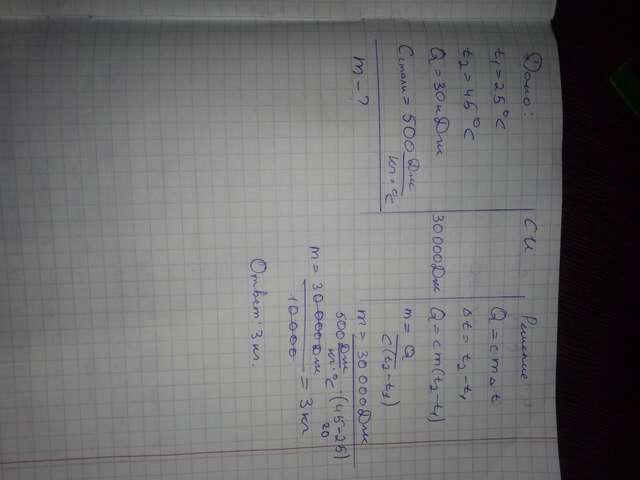 Дано:
t₁ = 25°C
t₂ = 45°C
Q = 30кДж
Cстали = 500 Дж/кг·°C
m - ?
СИ
30000Дж
Решение
Q = cmΔt
Δt = t₂ - t₁
Q = cm(t₂ - t₁)
m = Q/c(t₂ - t₁)
m = 30000Дж/500 Дж/кг·°C ·(45-25)
20
m = 30000Дж/10000 = 3кг
Ответ: 3 кг.